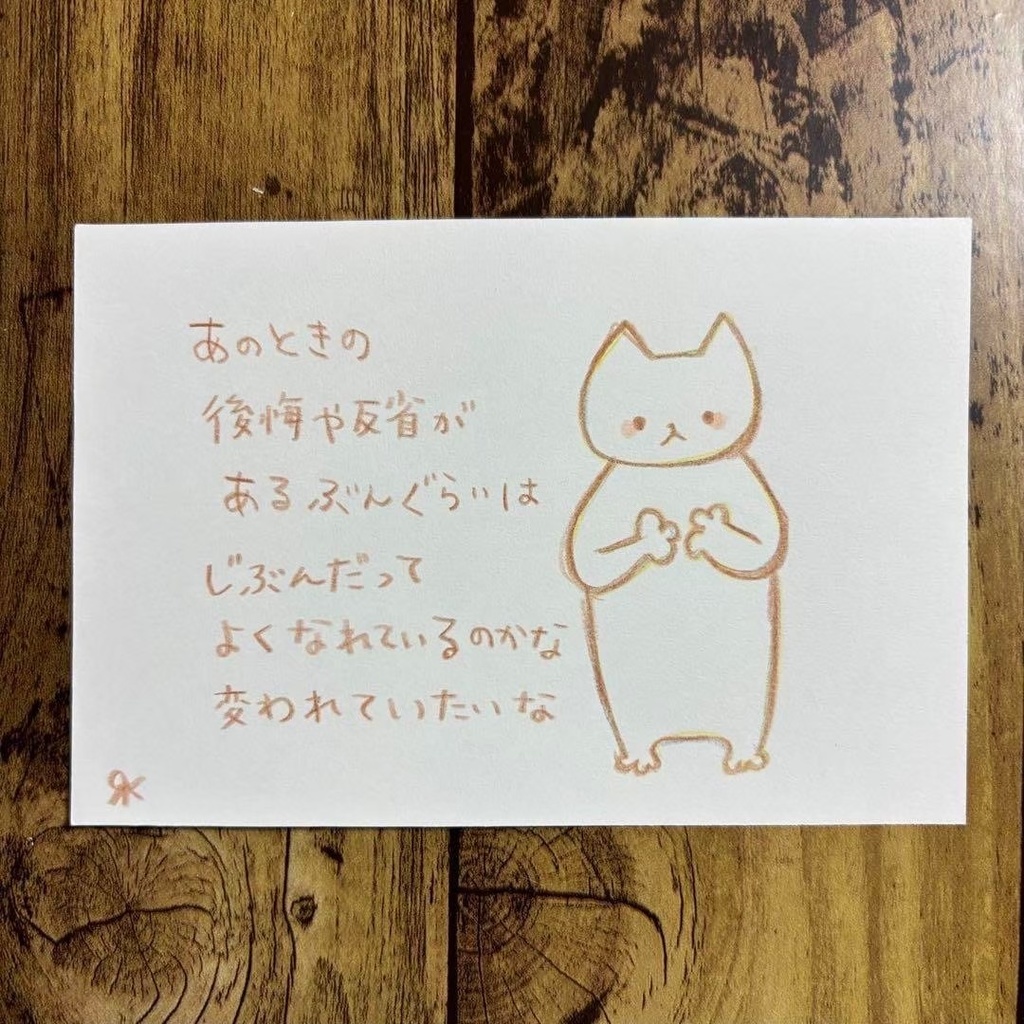 あのときの
後悔や反省が
あるぶんぐらいは
じぶんだって
よくなれているのかな
変われていたいな